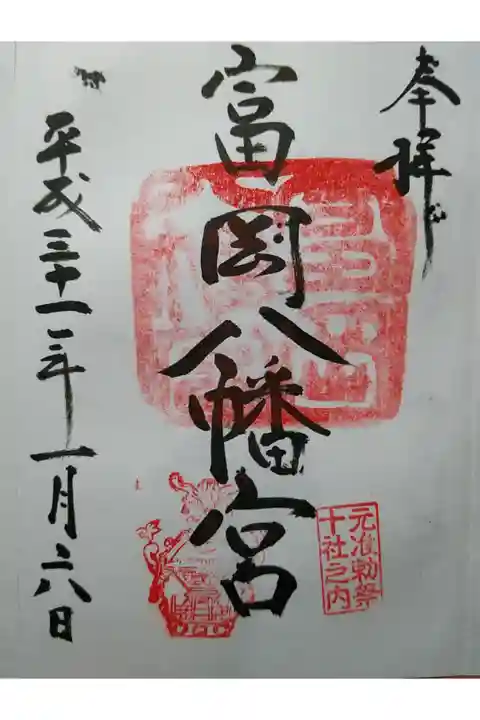 奉拝
富岡八幡宮
元准勅祭
十社之内
平成三十一年一月六日